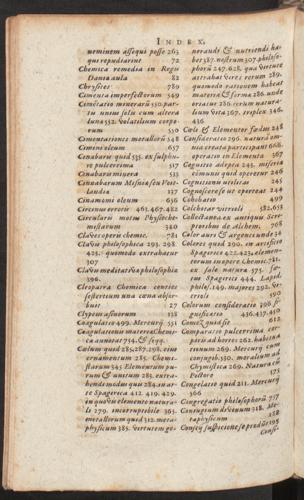 INDEX.
neminem assequi posse 263
qui repudiarint 72
Chemica remedia in Regis
Dania aula 82
Chrysites 789
Cimenta imperfectorum 549
Cemētatio minerarū 550. par-
tis unius solis cum altera
lunæ 552. volatilium corpo-
rum 550
Cimentationes metallorū 548
Cimenti oleum 657
Cinnabaris quid 535. ex sulphu-
re pulcerrima 517
Cinabaris minera 533
Cinnabarum Misnia seu Voit-
landia 127
Cinamomi oleum 636
Circinus erroris 461.467.482
Circularis motus Physioche-
miæ suum 340
Claves operis chemic. 781
Clavis philosophica 293. 298.
425. quomodo extrabatur
307
Clavis meditativa philosophia
396.
Cleopatra Chemica centies
sestertium una cœna absor-
buit 27
Clypeus asinorum 138
Coagulatio 499. Mercurij. 531
Coagulationis maceries Elemen-
ta
Cœlum quid 285.287.298. eius
ornamentum 285. Chemi-
starum 345. Elementum pu-
rum & unitum 285. extra-
hendi modus quis 284. in ar-
te Spagerica 412. 419. 429.
in quovis elemento natura-
li 279. incorruptibile 365.
metallorum quid 312. meta-
physicum 385. virtutem ge-
nerandi & nutriendi ha-
bet 387. nostrum 307. philoso-
phorū 247.628. qua virtute
attrahat vires rerum 289.
quomodo rationem habeat
materiæ & formæ 286. unde
oriatur 286. verum natura-
lium vita 367. triplex 346.
436
Cœli & Elementor. fœdus 248
Consideratio 296. naturæ om-
nia creata participant 668.
operatio in Elementa 367
Cognatio adepta 245. miseria
communis quid operetur 246
Cognitionis nutrices 245
Cognoscere se ut operetur 244
Cohobatio 499
Colcothar vitrioli 582.658
Collectanea ex antiquis Scri-
ptoribus de Alchem. 768
Color auri & argenti unde 36
Colores quid 290. in artificio
Spagerico 422.423. elemen-
torum in opere Chemic. 781.
ex sale natura 375. fo-
ris Spagerica 444. Lapid.
philos. 149. majores 292. vi-
trioli 590
Colorum consideratio 396 si-
gnificatio 436.437.450
Comes quid sit 612
Comparatio pulcerrima cor-
poris ad horreos 262. habita-
cionum 269. Mercurij cum
conjuge. 330. moralium ad
Chymistica 269. Natura cū
Pictore 375
Congelatio quid 211. Mercurij
366
Congregatio philosophorū 757
Coniugium divinum 318. Me-
taphysicum 188